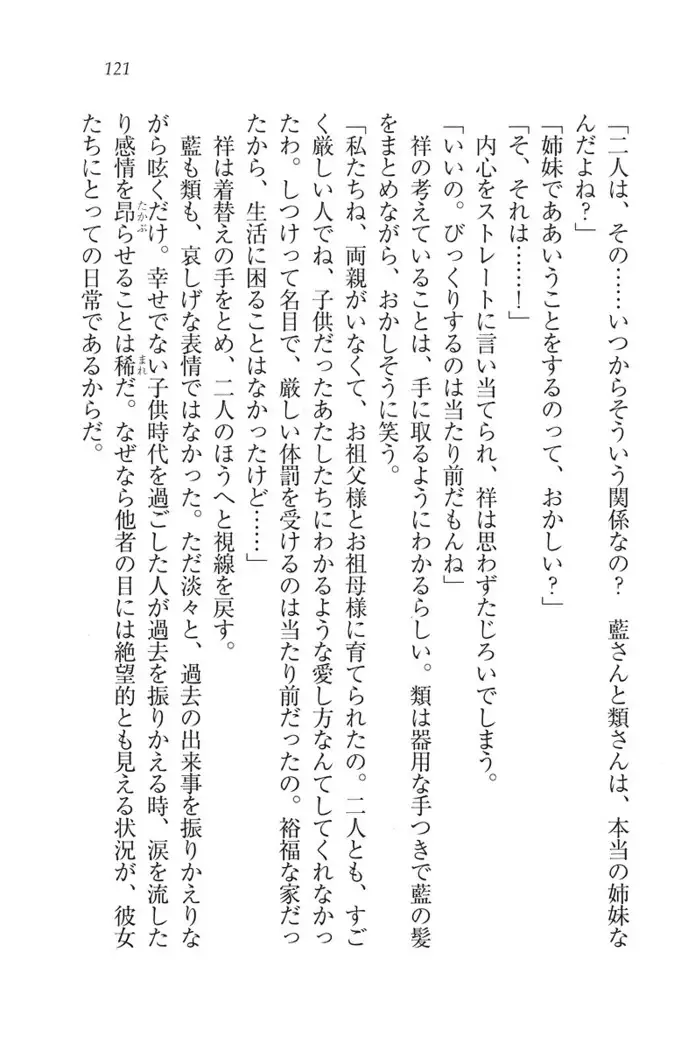 121
「二人は、その……いつからそういう関係なの？　藍さんと類さんは、本当の姉妹な
んだよね？」
「姉妹でああいうことをするのって、おかしい？」
「そ、それは……！」
内心をストレートに言い当てられ、祥は思わずたじろいでしまう。
「いいの。びっくりするのは当たり前だもんね」
祥の考えていることは、手に取るようにわかるらしい。類は器用な手つきで藍の髪
をまとめながら、おかしそうに笑う。
「私たちね、両親がいなくて、お祖父様とお祖母様に育てられたの。二人とも、すご
く厳しい人でね、子供だったあたしたちにわかるような愛し方なんてしてくれなかっ
たわ。しつけって名目で、厳しい体罰を受けるのは当たり前だったの。裕福な家だっ
たから、生活に困ることはなかったけど……」
祥は着替えの手をとめ、二人のほうへと視線を戻す。
藍も類も、哀しげな表情ではなかった。ただ淡々と、過去の出来事を振りかえりな
がら呟くだけ。幸せでない子供時代を過ごした人が過去を振りかえる時、涙を流した
り感情を昂らせることは稀だ。なぜなら他者の目には絶望的とも見える状況が、彼女
たちにとっての日常であるからだ。
たかぶ
まれ